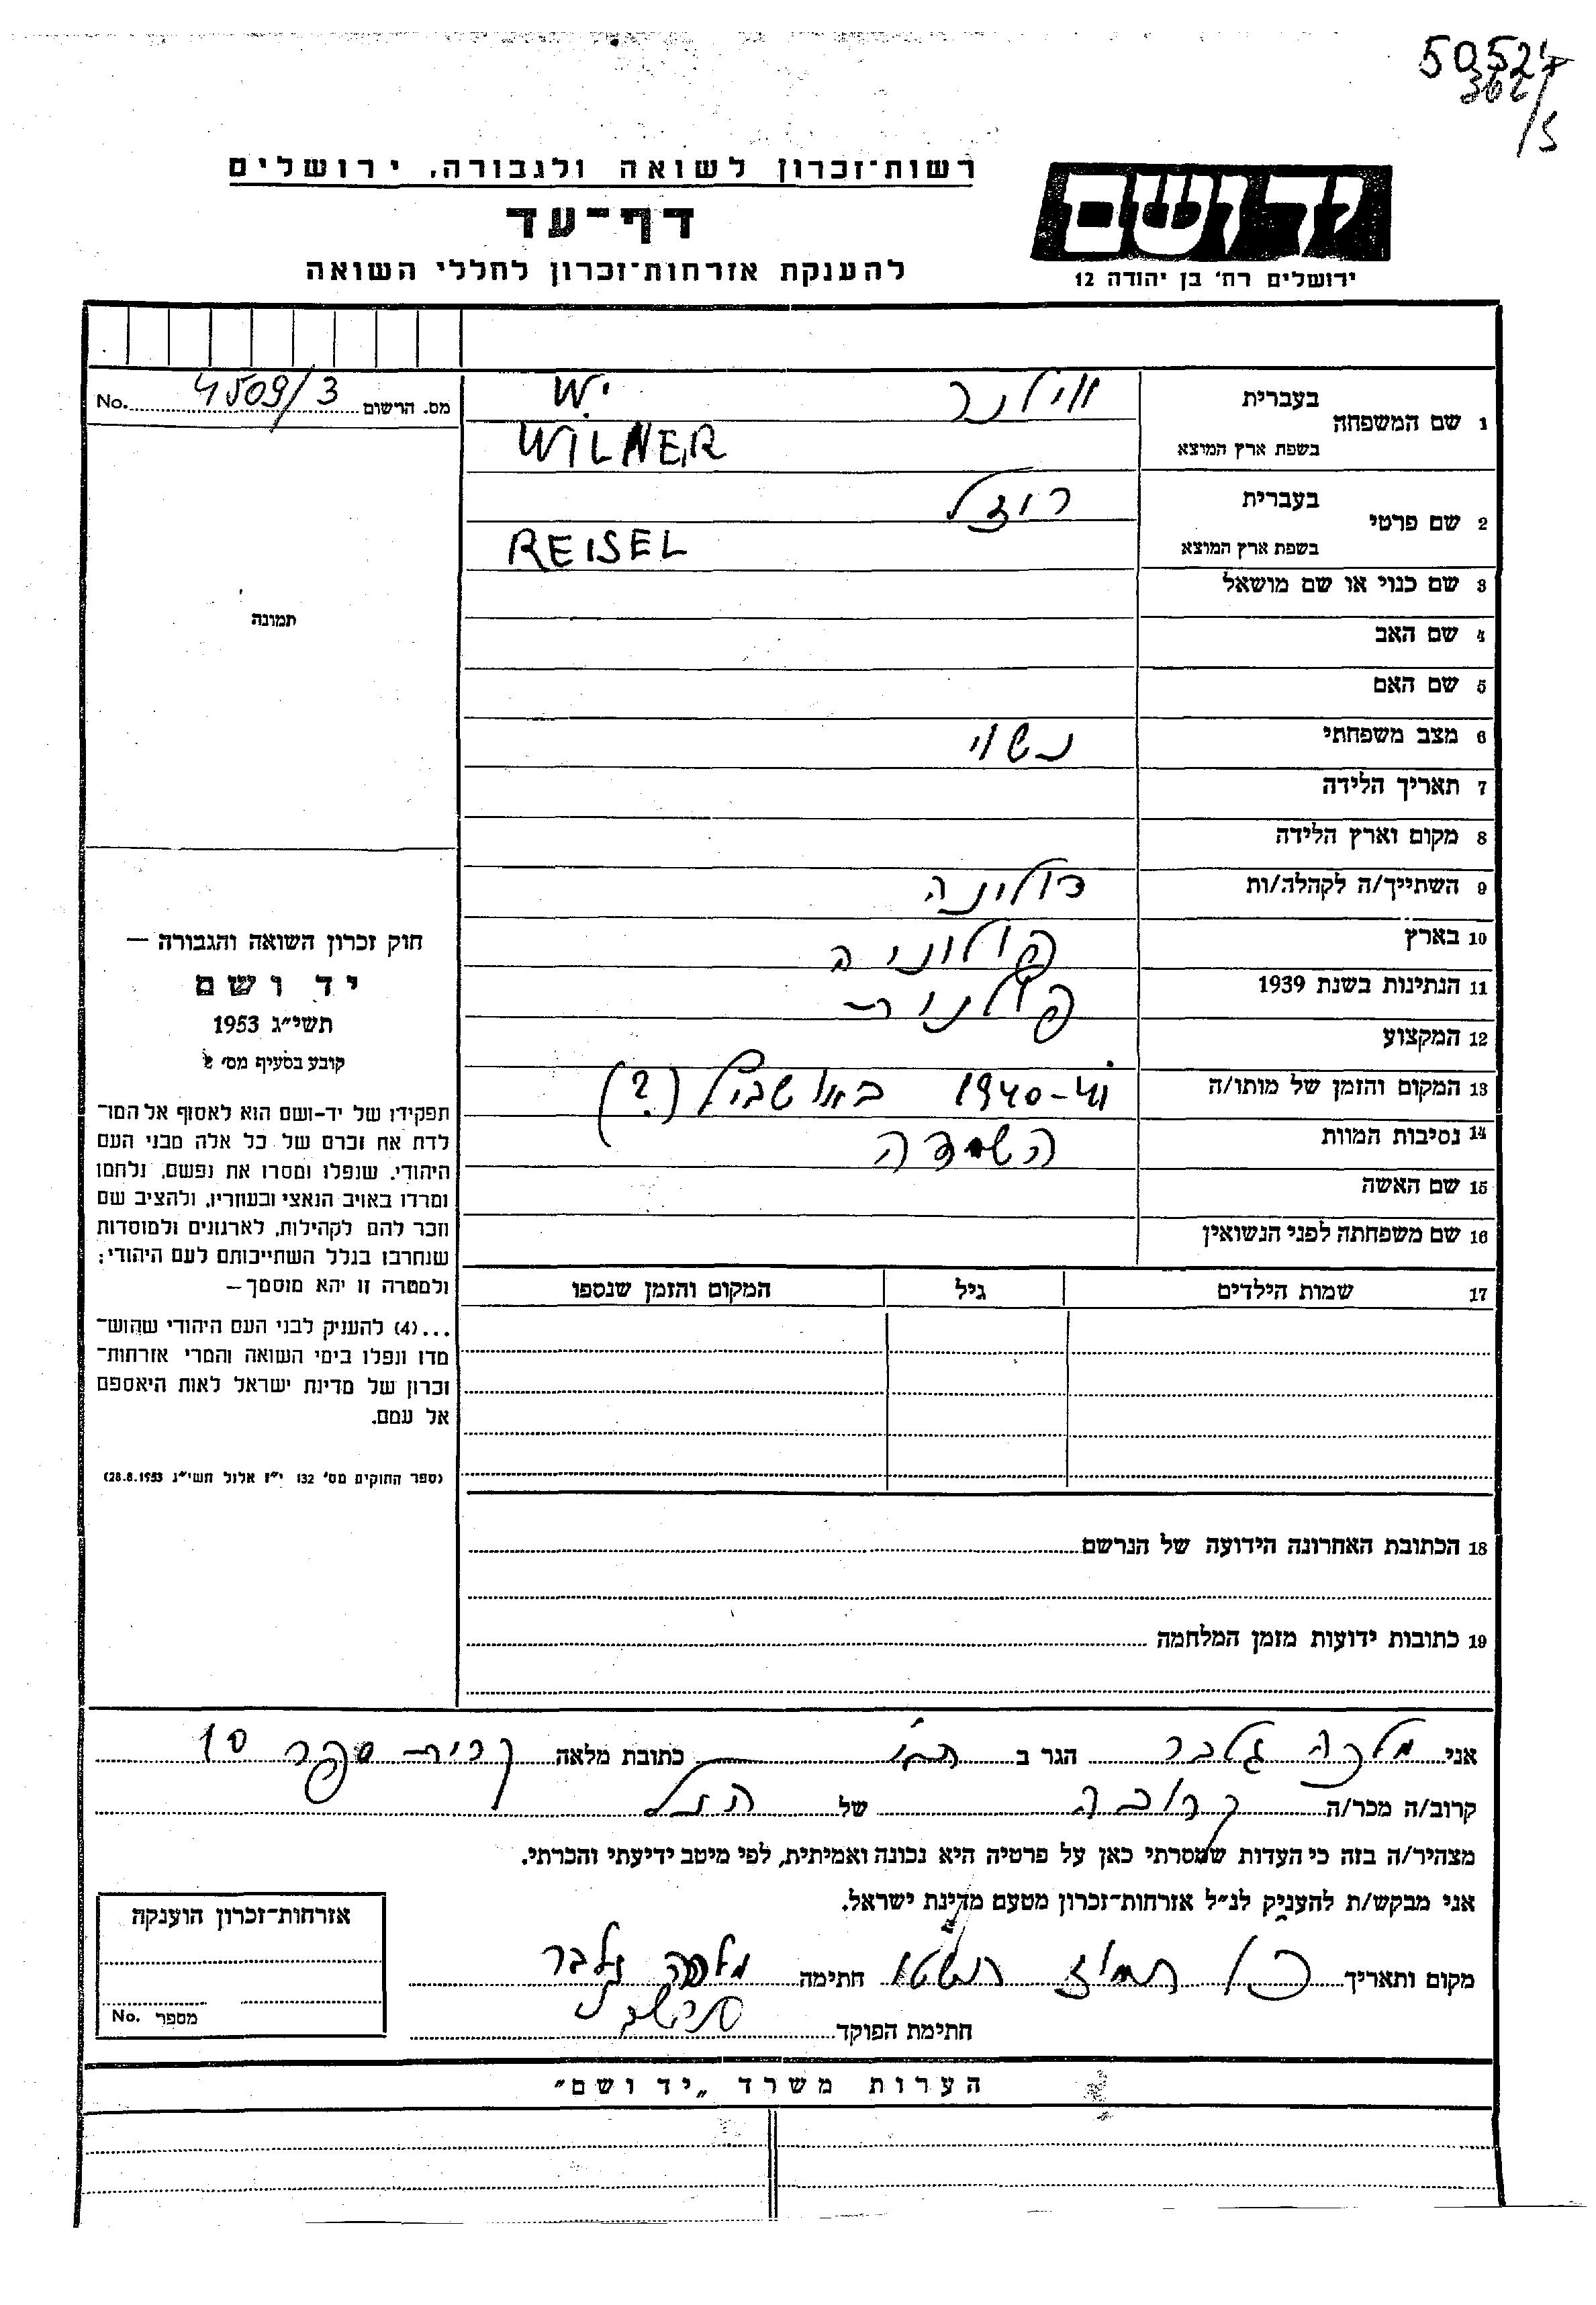 50524
362
/5
רשות־זכרון לשואה ולגבורה, ירושלים
יד ושם
דף־עד
להענקת אזרחות־זכרון לחללי השואה
ירושלים רח' בן יהודה 12
מס. הרישום 4509/3 No.
1 שם המשפחה בעברית וילנר
בשפת ארץ המוצא WILNER
2 שם פרטי בעברית רוזל
בשפת ארץ המוצא REISEL
3 שם כנוי או שם מושאל
4 שם האב
5 שם האם
6 מצב משפחתי נשוי
7 תאריך הלידה
8 מקום וארץ הלידה
9 השתייך/ה לקהלה/ות דולינה
10 בארץ פולוניה
11 הנתינות בשנת 1939 פולנית
12 המקצוע
13 המקום והזמן של מותו/ה 1940-41 באושביץ (?)
14 נסיבות המוות השמדה
15 שם האשה
16 שם משפחתה לפני הנשואין
17 שמות הילדים גיל המקום והזמן שנספו
18 הכתובת האחרונה הידועה של הנרשם
19 כתובות ידועות מזמן המלחמה
תמונה
חוק זכרון השואה והגבורה —
יד ושם
תשי"ג 1953
קובע בסעיף מס'
תפקידו של יד-ושם הוא לאסוף אל המו־
לדת את זכרם של כל אלה מבני העם
היהודי, שנפלו ומסרו את נפשם, נלחמו
ומרדו באויב הנאצי ובעוזריו, ולהציב שם
וזכר להם לקהילות, לארגונים ולמוסדות
שנחרבו בגלל השתייכותם לעם היהודי;
ולמטרה זו יהא מוסמך –
...(4) להעניק לבני העם היהודי שהוש־
מדו ונפלו בימי השואה והמרי אזרחות־
זכרון של מדינת ישראל לאות היאספם
אל עמם.
(ספר החוקים מס' 132 י"ז אלול תשי"ג 28.8.1953)
אני מלכה גלבר הגר ב כתובת מלאה קרית ספר 10
קרוב/ה מכר/ה קרובה של הנ"ל
מצהיר/ה בזה כי העדות שמסרתי כאן על פרטיה היא נכונה ואמיתית, לפי מיטב ידיעתי והכרתי.
אני מבקש/ת להעניק לנ"ל אזרחות־זכרון מטעם מדינת ישראל.
מקום ותאריך תמוז חתימה מלכה גלבר
חתימת הפוקד
אזרחות־זכרון הוענקה
מספר No.
הערות משרד „יד ושם"